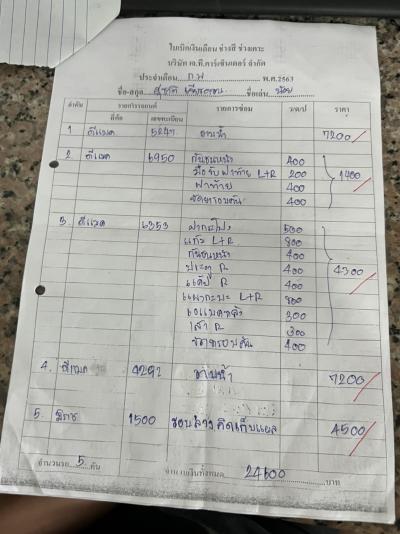 ใบเบิกเงินเดือน ช่างสี ช่างเคาะ
บริษัท เจ.ที.คาร์เซ็นเตอร์ จำกัด
ประจำเดือน ก.พ พ.ศ.2563
ชื่อ-สกุล ชื่อเล่น น้อย
ลำดับ รายการรถยนต์ รายการซ่อม ราคา
ยี่ห้อ เลขทะเบียน
1 ดีแมค 5247 อาบน้ำ 7200
2 ดีแมค 6950 กันชนหน้า 400
มือจับฝาท้าย L+R 200 1400
ฝาท้าย 400
ขัดรอบคัน 400
3 ดีแมค 6353 ฝากระโปง 500
แก้ม L+R 800
กันชนหน้า 400
ประตู R 400 4300
แค๊ป R 400
แผงกะบะ L+R 800
300
เสา R 300
ขัดรอบคัน 400
4. ดีแมค 4292 อาบน้ำ 7200
5. มิราจ 1500 4500
จำนวนรถ 5 คัน จำนวนเงินทั้งหมด 24600 บาท